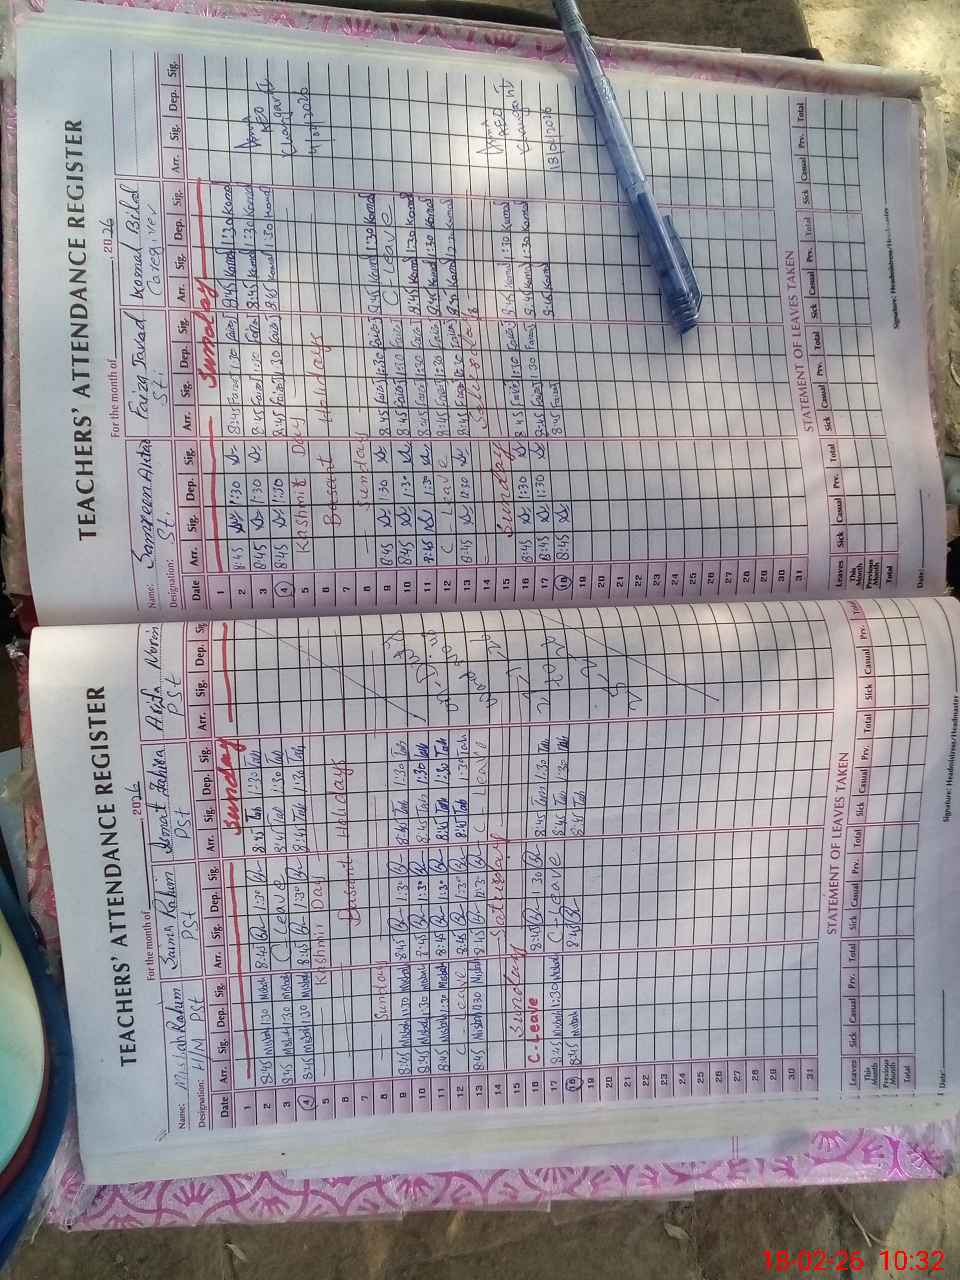 TEACHERS' ATTENDANCE REGISTER
For the month of ______, 2026
Name: Misbah Rahim Saima Rahim Ismat Zahira
Designation: H/M PSt PSt PSt PSt
Date Arr. Sig. Dep. Sig. Arr. Sig. Dep. Sig. Arr. Sig. Dep. Sig. Arr. Sig. Dep. Sig.
1 Sunday
2 8:45 Misbah 1:30 Misbah 8:45 1:30 8:45 Tah 1:30 Tah
3 8:45 Misbah 1:30 Misbah C-Leave 8:45 Tah 1:30 Tah
4 8:45 Misbah 1:30 Misbah 8:45 1:30 8:45 Tah 1:30 Tah
5 Kashmir Day
6 Basant Holidays
7
8 Sunday
9 8:45 Misbah 1:30 Misbah 8:45 1:30 8:45 Tah 1:30 Tah
10 8:45 Misbah 1:30 Misbah 8:45 1:30 8:45 Tah 1:30 Tah
11 8:45 Misbah 1:30 Misbah 8:45 1:30 8:45 Tah 1:30 Tah
12 C-Leave 8:45 1:30 8:45 Tah 1:30 Tah
13 8:45 Misbah 1:30 Misbah 8:45 12:30 C-Leave
14 Saturday
15 Sunday
16 C-Leave 8:45 1:30 8:45 Tah 1:30 Tah
17 8:45 Misbah 1:30 Misbah C-Leave 8:45 Tah 1:30 Tah
18 8:45 Misbah 8:45 8:45 Tah
19
20
21
22
23
24
25
26
27
28
29
30
31
STATEMENT OF LEAVES TAKEN
Leaves Sick Casual Prv. Total Sick Casual Prv. Total Sick Casual Prv. Total Sick Casual Prv. Total
This Month
Previous Month
Total
Date: Signature: Headmistress/Headmaster
TEACHERS' ATTENDANCE REGISTER
For the month of ______, 2026
Name: Samreen Faiza Javad Komal Bilal
Designation: St. St. Caregiver
Date Arr. Sig. Dep. Sig. Arr. Sig. Dep. Sig. Arr. Sig. Dep. Sig. Arr. Sig. Dep. Sig.
1 Sunday
2 8:45 1:30 8:45 Faiza 1:30 Faiza 8:45 Komal 1:30 Komal
3 8:45 1:30 8:45 Faiza 1:30 Faiza 8:45 Komal 1:30 Komal AEO
4 8:45 1:30 8:45 Faiza 1:30 Faiza 8:45 Komal 1:30 Komal
5 Kashmir Day
6 Basant Holidays
7
8 Sunday
9 8:45 1:30 8:45 Faiza 1:30 Faiza 8:45 Komal 1:30 Komal
10 8:45 1:30 8:45 Faiza 1:30 Faiza C-Leave
11 8:45 1:30 8:45 Faiza 1:30 Faiza 8:45 Komal 1:30 Komal
12 C Leave 8:45 Faiza 1:30 Faiza 8:45 Komal 1:30 Komal
13 8:45 12:30 8:45 Faiza 12:30 Faiza 8:45 Komal Komal
14 Saturday AEO
15 Sunday
16 8:45 1:30 8:45 Faiza 1:30 Faiza 8:45 Komal 1:30 Komal
17 8:45 1:30 8:45 Faiza 1:30 Faiza 8:45 Komal 1:30 Komal 13/02/2026
18 8:45 8:45 Faiza 8:45 Komal
19
20
21
22
23
24
25
26
27
28
29
30
31
STATEMENT OF LEAVES TAKEN
Leaves Sick Casual Prv. Total Sick Casual Prv. Total Sick Casual Prv. Total Sick Casual Prv. Total
This Month
Previous Month
Total
Date: Signature: Headmistress/Headmaster
18-02-26 10:32